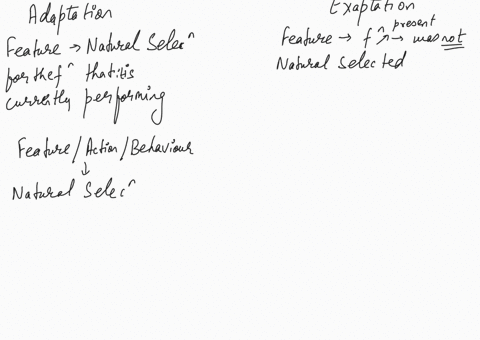 Adaptation
Feature → Natural Selecⁿ
for the fⁿ that it is
currently performing
Feature / Action / Behaviour
↓
Natural Selecⁿ
Exaptation
present
Feature → fⁿ → was not
Natural Selected